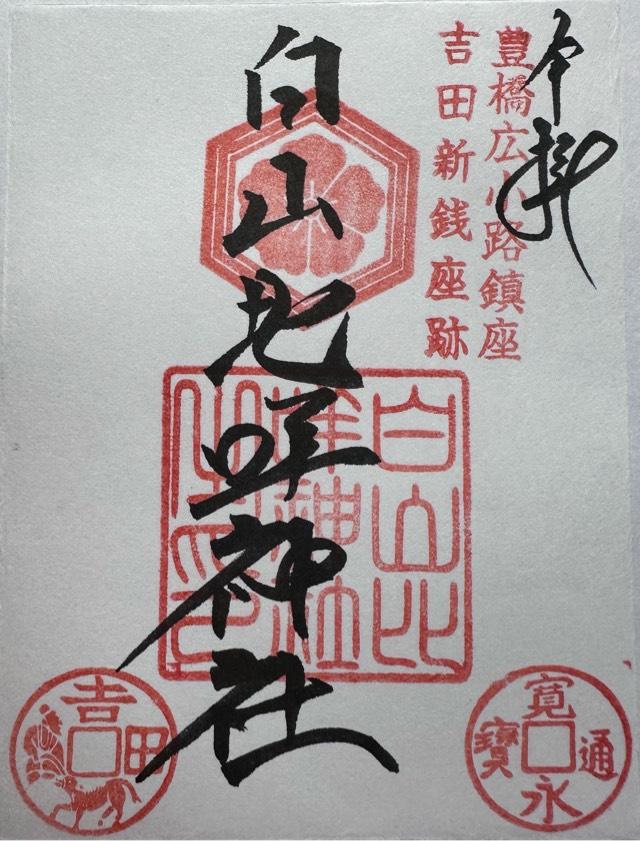 奉拝
豊橋広小路鎮座
吉田新銭座跡
白山比咩神社
白山比
咩神社
寛永通寶
吉田